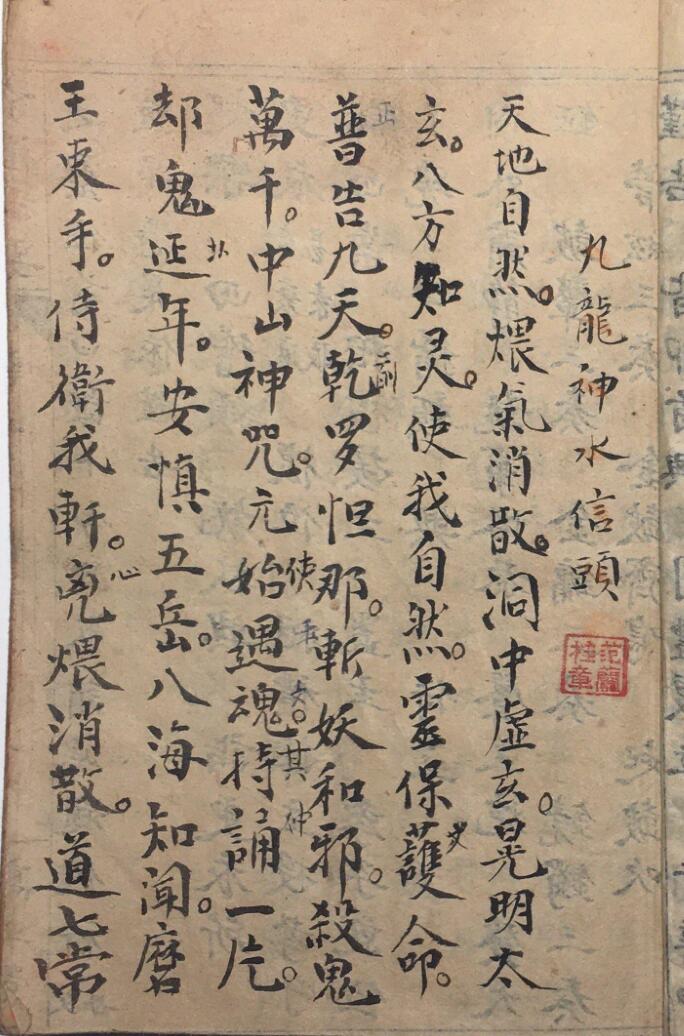 九龍神水信頭
天地自然。煨氣消散。洞中虛玄。晃明太
玄。八方知灵。使我自然。靈保護命。
普告九天。乾罗怛那。斬妖和邪。殺鬼
萬千。中山神咒。元始遇魂。持誦一片。
却鬼延年。安慎五岳。八海知闻。磨
王東手。侍衛我軒。兇煨消散。道七常